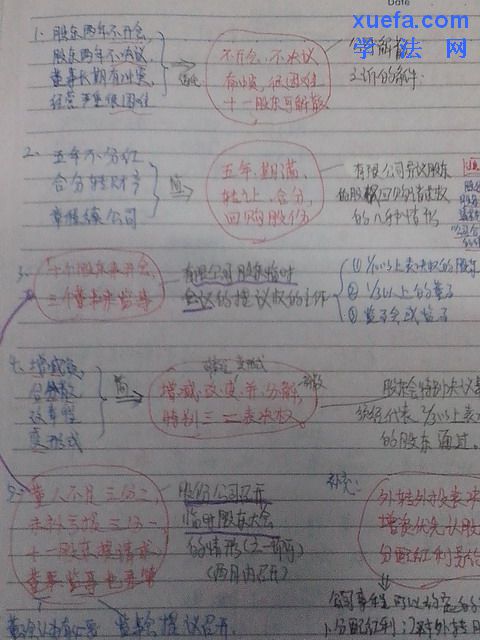 Date
xuefa.com
学法网
1. 股东两年不开会,
股东两年不决议,
董事长期有冲突,
经营严重很困难
不开会、不决议
有冲突,很困难
十一股东可解散
公司解散
之诉的条件.
2. 五年不分红
合分转财产
章程续公司
简
五年期满、
转让、合分,
回购股份
有限公司异议股东
的股权回购请求权
的几种情形
3.
十分股东来开会
三个董事来监事
有限公司股东临时
会议的提议权的主体
① 1/10以上表决权的股东
② 1/3以上的董事
③ 监事会或监事
4. 增减资
合分散
改章程
变形式
简
增减、改、变、并、分、解
特别三二表决权
股东会特别决议
经代表2/3以上表
的股东通过.
5. 董人不足三分二
未弥亏损三分一
十一股东提请求
董事监事也来凑
股份公司召开
临时股东大会
的情形(之一即可)
(两月内召开)
董事会认为有必要 监事会提议召开.
补充:
外转外
增资优先认股
分配红利
公司章程可以约定的
1.分配红利; 2.对外转